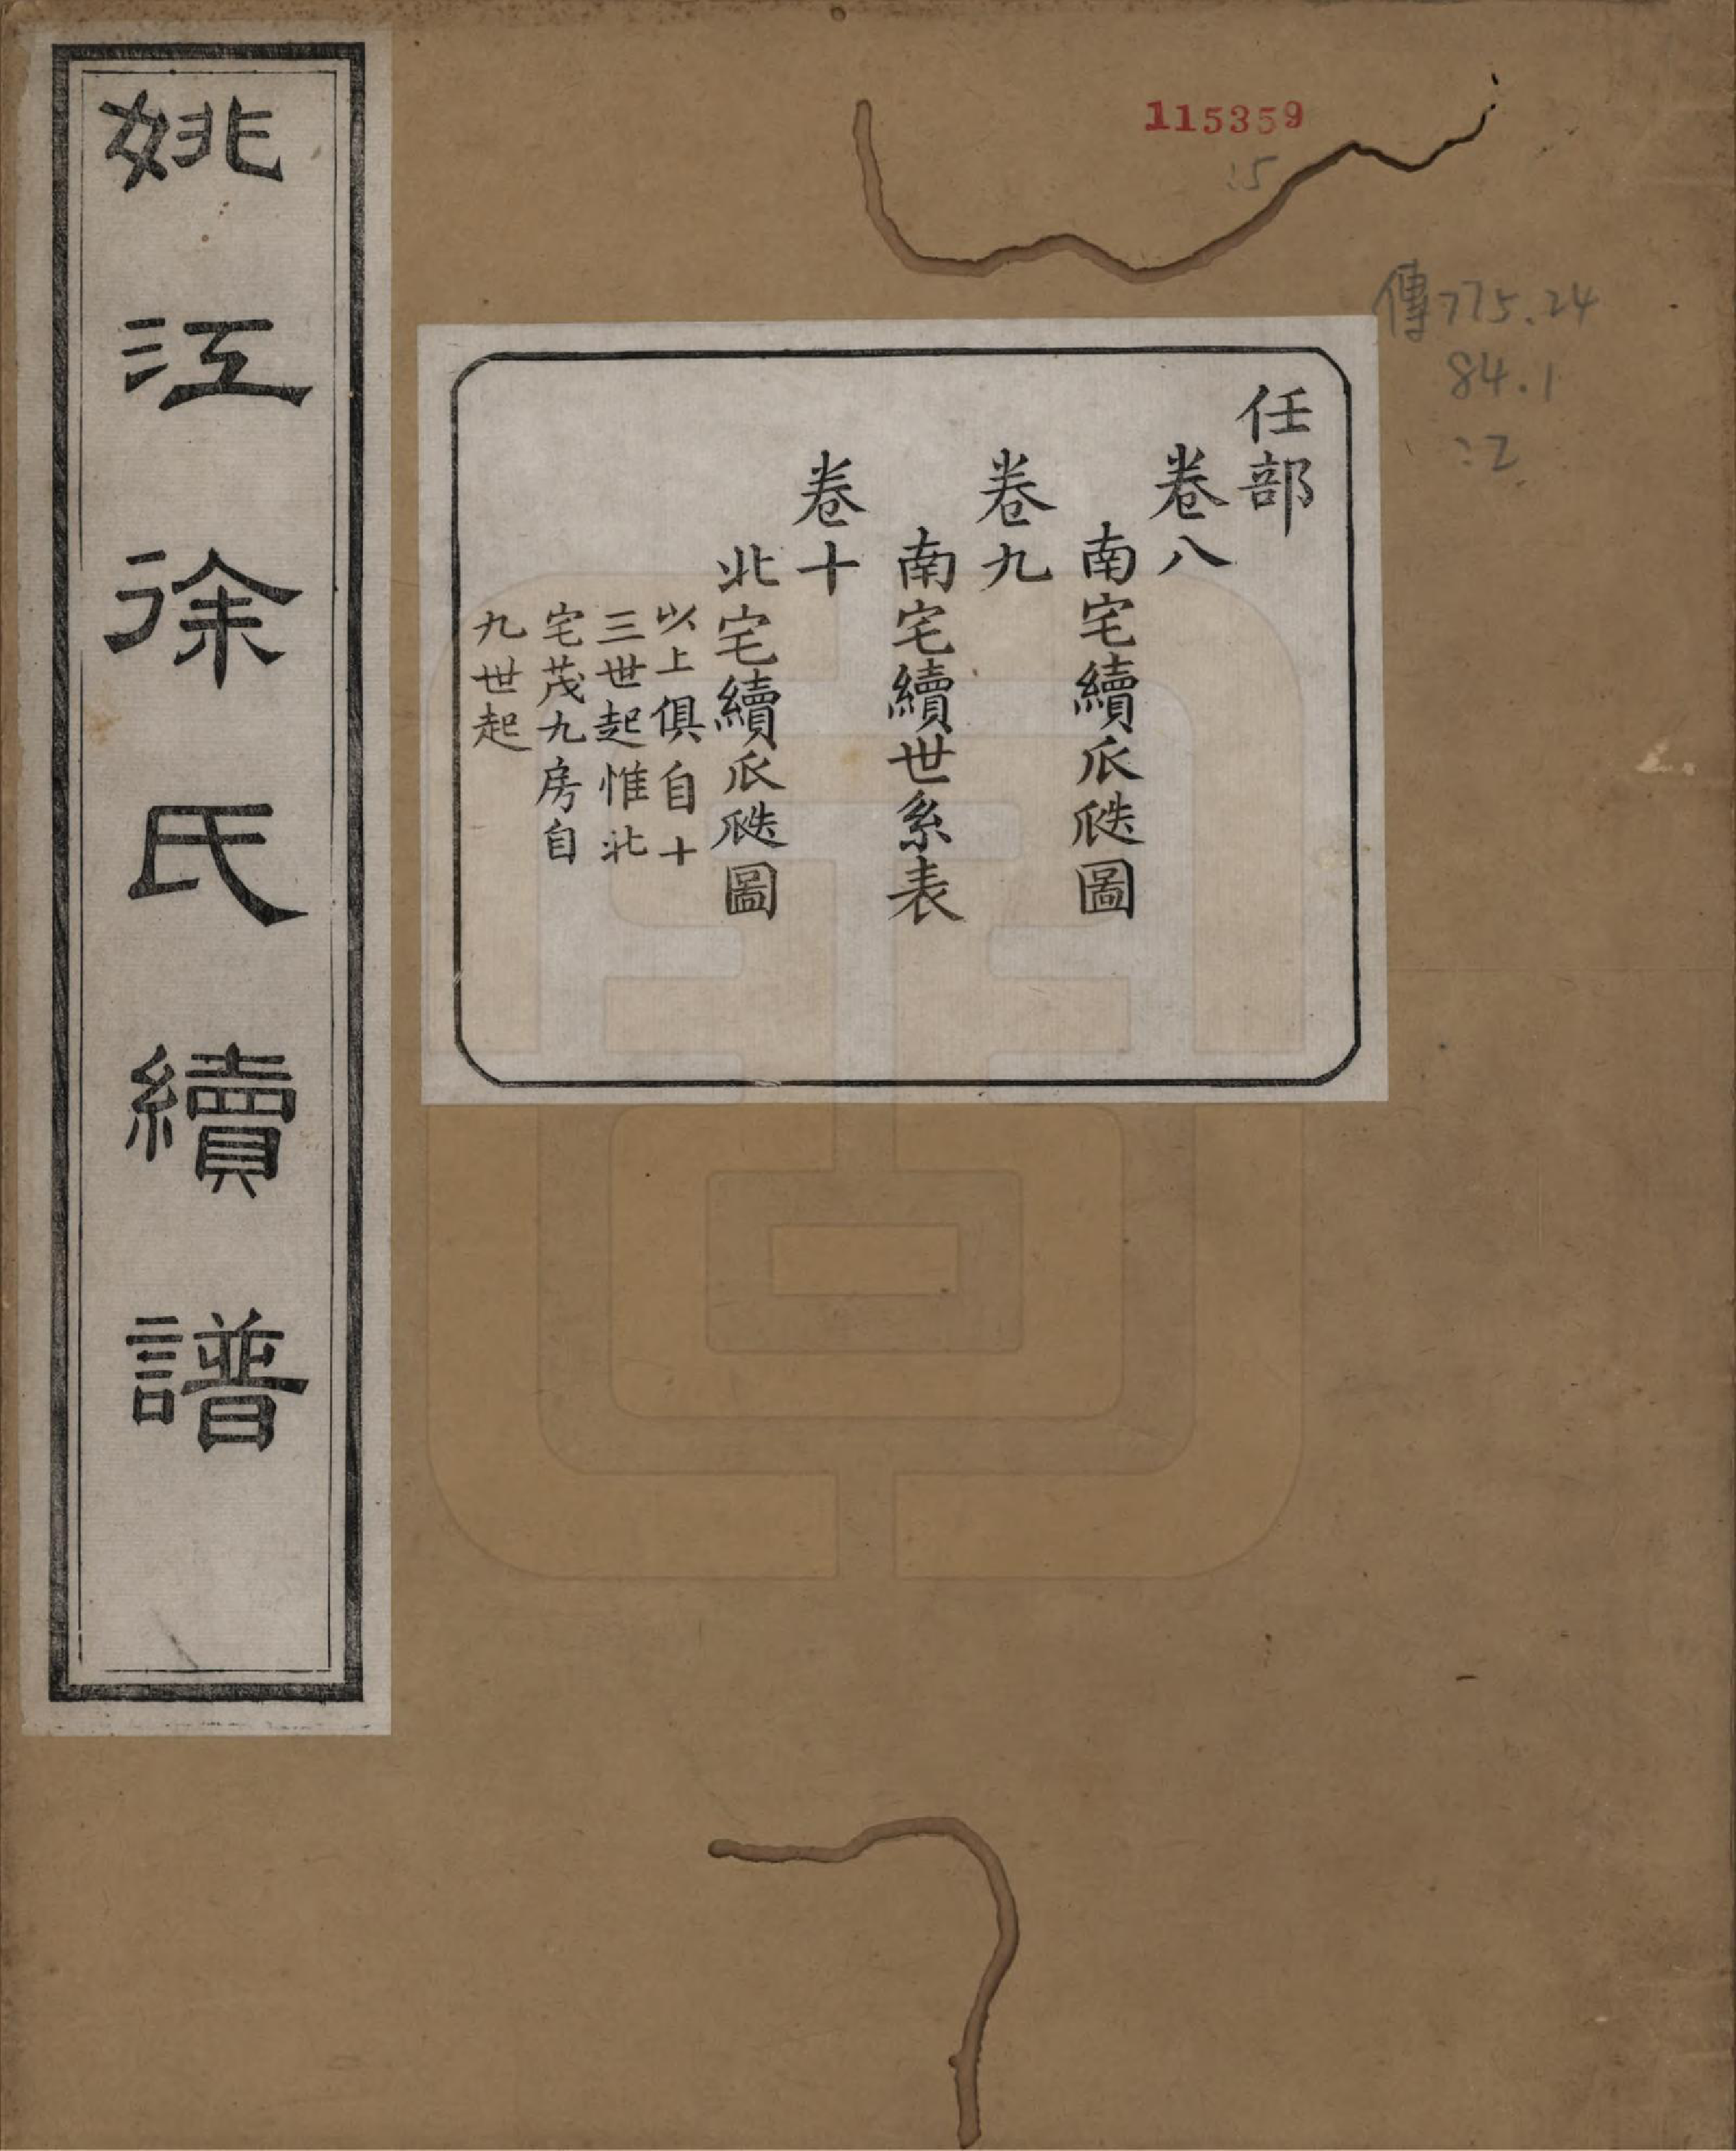 姚江徐氏續譜
任部
卷八
南宅續瓜瓞圖
卷九
南宅續世系表
卷十
北宅續瓜瓞圖
以上俱自十
三世起惟北
宅茂九房自
九世起
115359
:5
傳775.24
84.1
:2